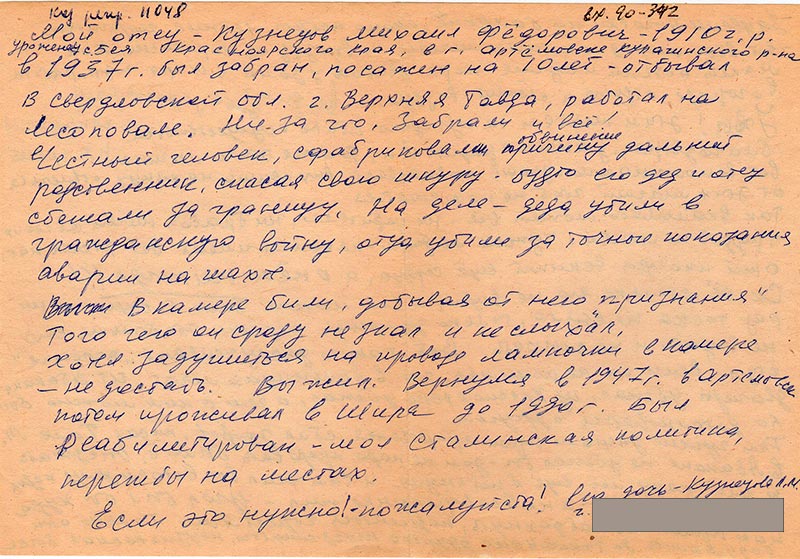 КП 11048
вх. 90-342
Мой отец - Кузнецов Михаил Фёдорович - 1910 г.р.
уроженец Красноярского края, в г. Артёмовске Курагинского р-на
в 1937 г. был забран, посажен на 10 лет - отбывал
в Свердловской обл. г. Верхняя Тавда, работал на
лесоповале. Ни за что, забрали и всё
обвинение
Честный человек, сфабриковали причину дальний
родственник, спасая свою шкуру - будто его дед и отец
сбежали за границу. На деле - деда убили в
гражданскую войну, отца убили за точные показания
аварии на шахте.
В камере били, добывая от него "признания"
того чего он сроду не знал и не слыхал,
хотел задушиться на проводе лампочки в камере
- не достать. Выжил. Вернулся в 1947 г. в Артёмовск
потом проживал в Шира до 1990 г. Был
реабилитирован - мол сталинская политика,
перегибы на местах.
Если это нужно! - пожалуйста! Его дочь - Кузнецова Л.М.
г.